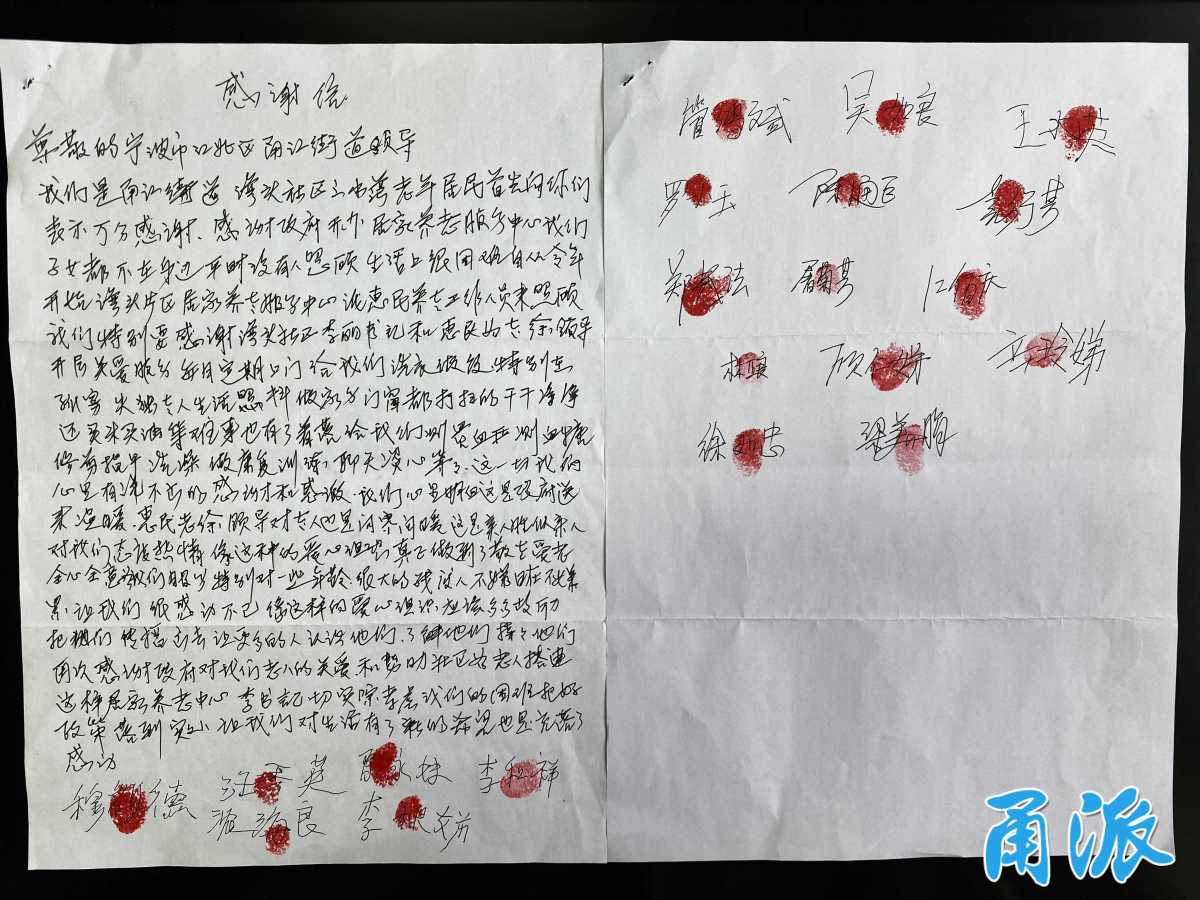 感谢信
尊敬的宁波市江北区甬江街道领导
我们是甬江街道湾头社区 老年居民首先向你们
表示万分感谢、感谢政府开办居家养老服务中心我们
子女都不在身边平时没有人照顾生活上很困难自从今年
开始湾头社区居家养老服务中心派惠民养老工作人员来照顾
我们特别要感谢湾头社区李丽书记和惠民为老徐领导
开居关爱服务每月定期上门给我们洗衣 被特别是
孤寡失独老人生活照料做家务门窗都打扫的干干净净
还买米买油等难事也有了着落给我们测量血压测血糖
修剪指甲洗澡做康复训练、聊天谈心等等、这一切我们
心里有说不出的感谢和感激、我们心里明白这是政府送
来温暖、惠民老徐领导对老人也是问寒问暖这是亲人胜似亲人
对我们态度热情像这种的爱心组织真正做到了敬老爱老
全心全意为我们服务特别对一些年龄很大的残疾人不嫌脏不嫌
累、让我们很感动不已像这样的爱心组织应该多多鼓励
把他们传播出去让更多的人认识他们、了解他们 他们
再次感谢政府对我们老人的关爱、和帮助社区为老人搭建
这样居家养老中心李书記切实际考虑我们的困难把好
政策落到实处让我们对生活有了新的希望也是充满了
感动
穆 德 汪 英 永妹 李 祥
良 李 芬
管 斌 吴 良 王 英
罗 玉 陈 巨
郑 菊芳
林 顾 娣
徐 忠 梁 娟
甬派